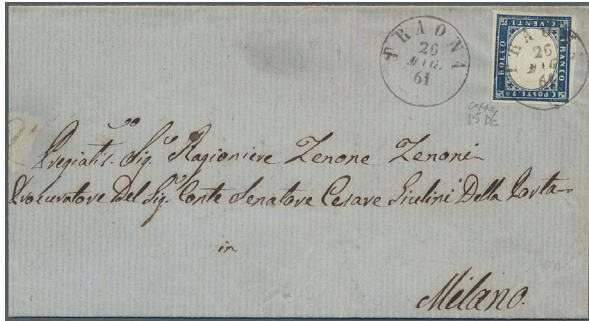 TRAONA
26
GIU.
61
TRAONA
26
GIU.
61
C. VENTI
BOLLO
FRANCO
C. POSTE 20
15 DE
Pregiatis. Sig.e Ragioniere Zenone Zenoni
Procuratore Del Sig.r Conte Senatore Cesare Giulini Della Porta
in
Milano.